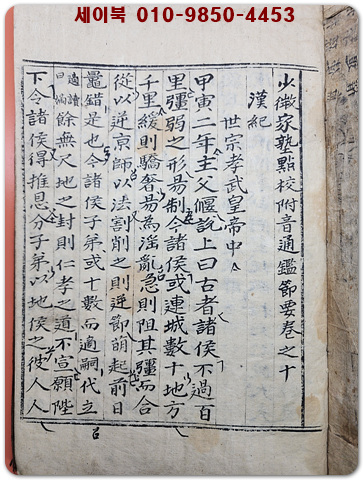 세이북 010-9850-4453
少微家塾點校附音通鑑節要卷之十
漢紀
世宗孝武皇帝中
甲寅二年主父偃說上曰古者諸侯不過百
里彊弱之形易制今諸侯或連城數十地方
千里緩則驕奢易為淫亂急則阻其彊而合
從以逆京師以法割削之則逆節萌起前日
鼂錯是也今諸侯子弟或十數而適嗣代立
餘無尺地之封則仁孝之道不宣願陛
下令諸侯得推恩分子弟以地侯之彼人人